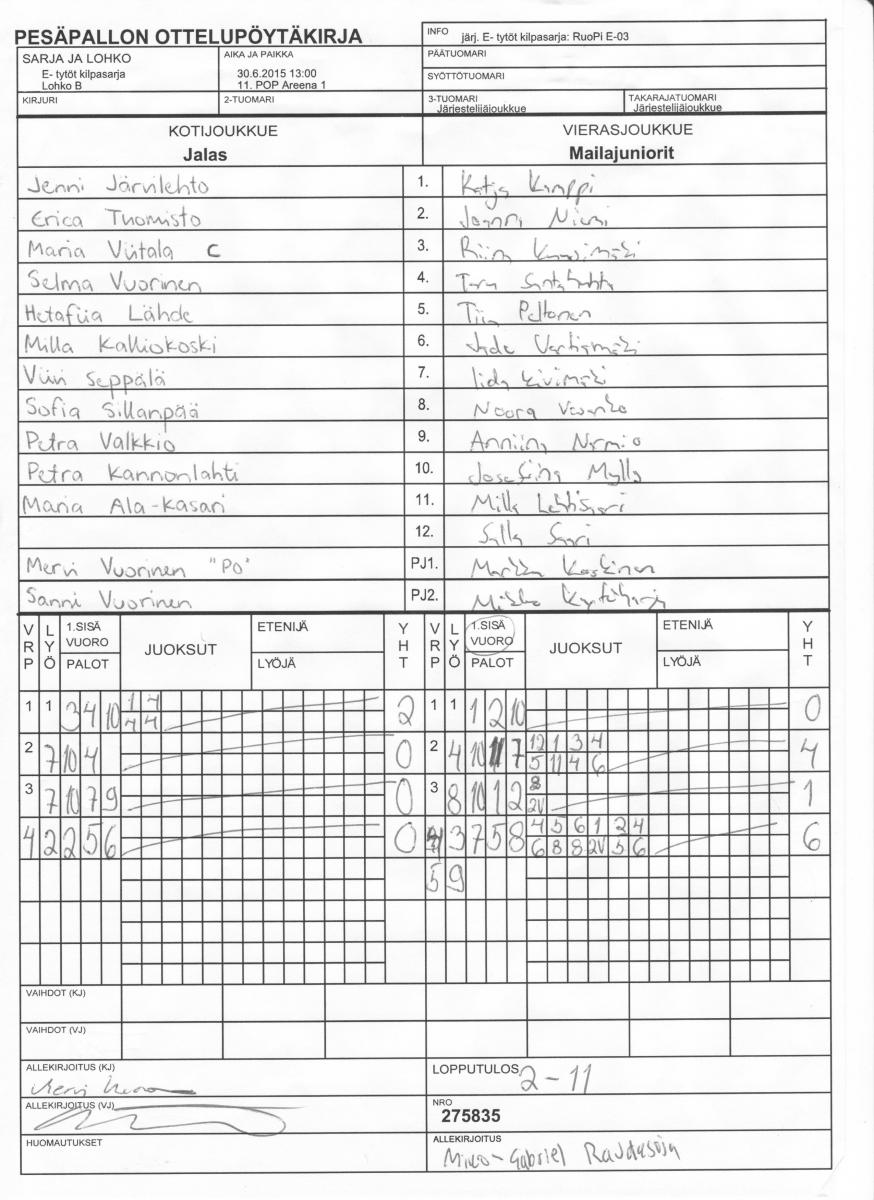 PESÄPALLON OTTELUPÖYTÄKIRJA
INFO järj. E- tytöt kilpasarja: RuoPi E-03
PÄÄTUOMARI
SYÖTTÖTUOMARI
SARJA JA LOHKO
E- tytöt kilpasarja
Lohko B
AIKA JA PAIKKA
30.6.2015 13:00
11. POP Areena 1
KIRJURI
2-TUOMARI
3-TUOMARI
Järjestelijäjoukkue
TAKARAJATUOMARI
Järjestelijäjoukkue
KOTIJOUKKUE
Jalas
VIERASJOUKKUE
Mailajuniorit
Jenni Järvilehto 1. Katja Kamppi
Erica Tuomisto 2. Joanna Niemi
Maria Viitala C 3.
Selma Vuorinen 4.
Hetafiia Lähde 5. Tiia Peltonen
Milla Kalliokoski 6. Jade
Viivi Seppälä 7. Iida Kivimäki
Sofia Sillanpää 8. Noora
Petra Valkkio 9. Anniina
Petra Kannonlahti 10. Josefina Mylly
Maria Ala-Kasari 11. Milla
12. Salla Saari
Mervi Vuorinen "PO" PJ1. Markku Koskinen
Sanni Vuorinen PJ2.
VRP LYÖ 1.SISÄ VUORO PALOT JUOKSUT ETENIJÄ LYÖJÄ YHT VRP LYÖ 1.SISÄ VUORO PALOT JUOKSUT ETENIJÄ LYÖJÄ YHT
1 1 3 4 10 1 4 2 1 1 1 2 10 0
4 4
2 7 10 4 0 2 4 10 11 7 12 1 3 4 4
5 11 4 6
3 7 10 7 9 0 3 8 10 1 2 8 1
2V
4 2 2 5 6 0 4 3 7 5 8 4 5 6 1 2 4 6
6 8 8 2V 5 6
5 9
VAIHDOT (KJ)
VAIHDOT (VJ)
ALLEKIRJOITUS (KJ)
LOPPUTULOS 2-11
ALLEKIRJOITUS (VJ)
NRO
275835
HUOMAUTUKSET
ALLEKIRJOITUS
Mico-Gabriel Raudasoja